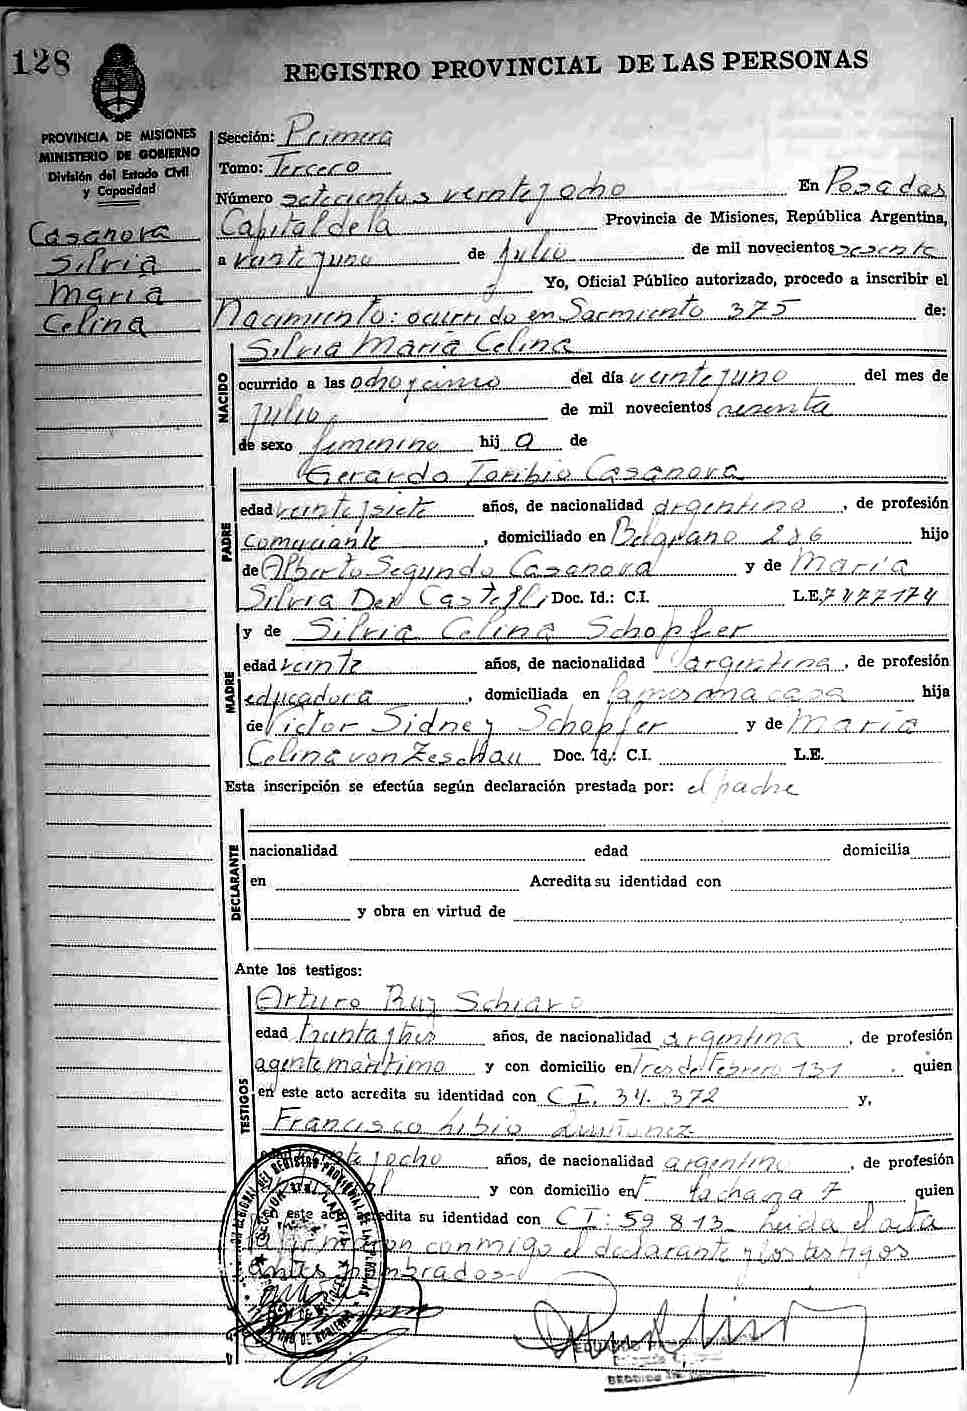 128
REGISTRO PROVINCIAL DE LAS PERSONAS
PROVINCIA DE MISIONES
MINISTERIO DE GOBIERNO
División del Estado Civil
y Capacidad
Casanova
Silvia
María
Celina
Sección: Primera
Tomo: Tercero
Número setecientos veinte y ocho En Posadas
Capital de la Provincia de Misiones, República Argentina,
a veinte y uno de Julio de mil novecientos sesenta
Yo, Oficial Público autorizado, procedo a inscribir el
Nacimiento: ocurrido en Sarmiento 375 de:
NACIDO
Silvia María Celina
ocurrido a las ocho y cinco del día veinte y uno del mes de
Julio, de mil novecientos sesenta
de sexo femenino hij a de
PADRE
Gerardo Toribio Casanova
edad veinte y siete años, de nacionalidad argentino, de profesión
comerciante, domiciliado en Belgrano 286 hijo
de Alberto Segundo Casanova y de María
Silvia Castelli Doc. Id.: C.I. L.E. 7477174
y de Silvia Celina Schopfer
MADRE
edad veinte años, de nacionalidad argentina, de profesión
educadora, domiciliada en la misma casa hija
de Victor Sidney Schopfer y de María
Celina von Zeschau Doc. Id.: C.I. L.E.
Esta inscripción se efectúa según declaración prestada por: el padre
DECLARANTE
nacionalidad edad domicilia
en Acredita su identidad con
y obra en virtud de
Ante los testigos:
TESTIGOS
Arturo Ruy Schiavo
edad treinta y tres años, de nacionalidad argentina, de profesión
agente marítimo y con domicilio en Tres de Febrero 131. quien
en este acto acredita su identidad con C.I. 34.372 y,
Francisco Libio Quiñonez
y ocho años, de nacionalidad argentino, de profesión
y con domicilio en F. Lachana 7 quien
en este acto acredita su identidad con C.I: 59813 Leida el acta
la firmaron conmigo el declarante y los testigos
antes nombrados